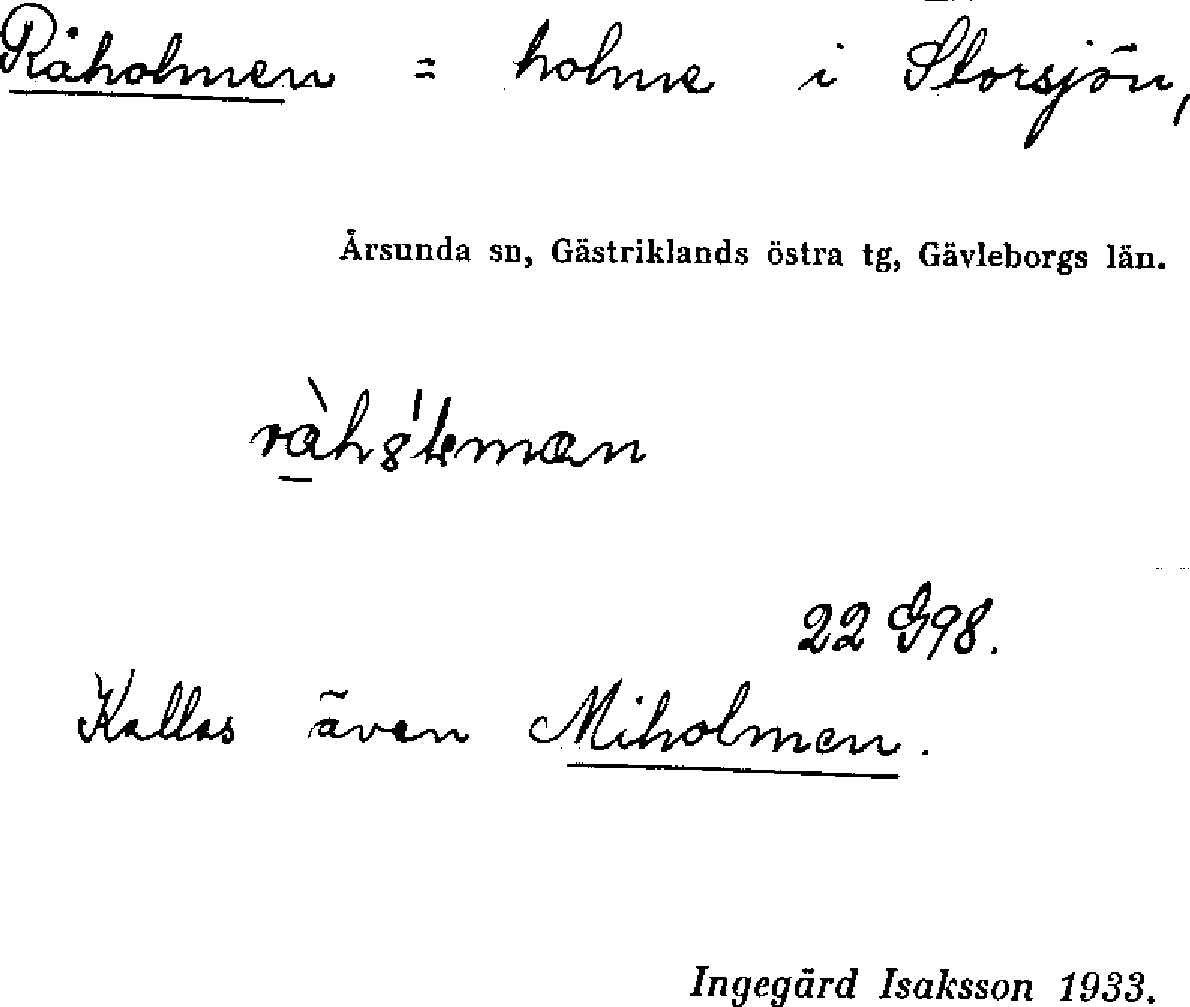 Råholmen = holme i Storsjön,
Årsunda sn, Gästriklands östra tg, Gävleborgs län.
22 G98.
Kallas även Miholmen.
Ingegärd Isaksson 1933.